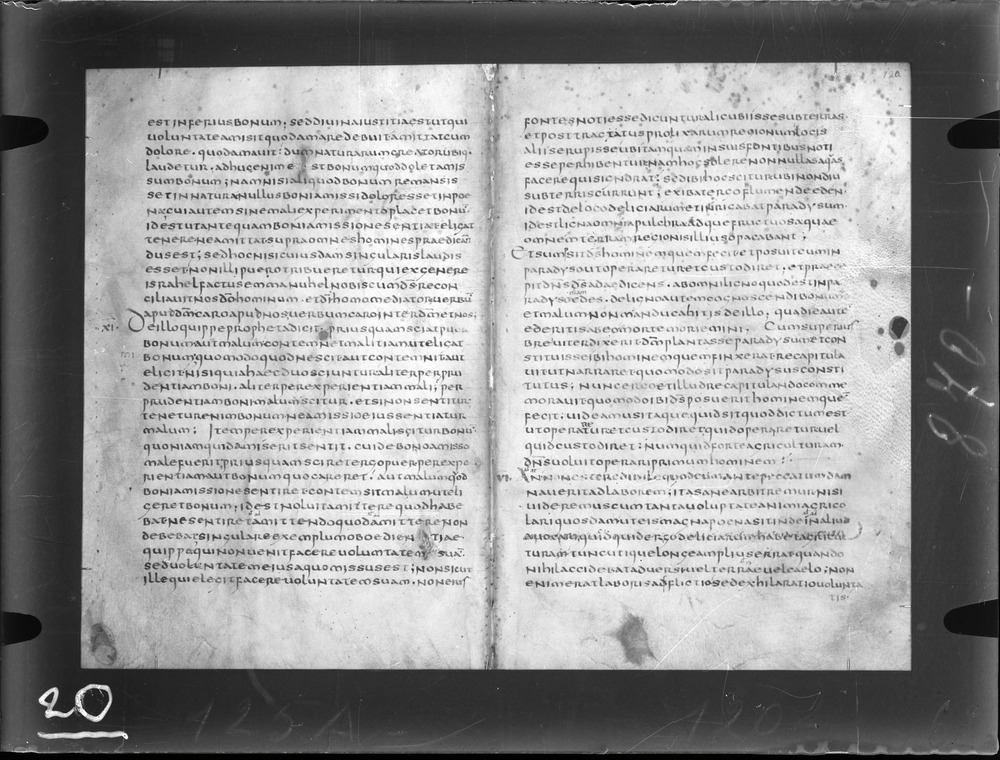 est inferius bonum, sed divina iustitia est ut qui
voluntate amisit quod amare debuit amittat cum
dolore. quod amavit: dum naturarum creator ubiq.
laudetur. adhuc enim est bonum quod dolet amis
sum bonum; nam nisi aliquod bonum remansis
set in natura nullus boni amissi dolor esset in poe
na cui autem sine mali experimento placet bonū
id est ut antequam boni amissionem sentiat elicat
tenere ne amittat supra omnes homines praedican
dus est; sed hoc nisi cuiusdam singularis laudis
esset non illi puero tribueretur qui ex genere
israhel factus emmanuhel nobiscum d̄s recon
ciliavit nos dō hominum et dī homo mediator verbū
aput dm̄ caro aput nos, verbum caro inter dm̄ et nos;
xi.
De illo quippe propheta dicit. priusquam sciat puer
bonum aut malum contemnet malitiam ut elicat
bonum; quomodo quod nescit aut contemnit aut
elicit nisi quia haec duo sciuntur aliter per pru
dentiam boni. aliter per experientiam mali; per
prudentiam boni malum scitur. etsi non sentitur
teneturenim bonum ne amissione eius sentiatur
malum; Item per experientiam mali scitur bonū
quoniam quid amiserit sentit. cui de bono amisso
male fuerit; priusquam sciret ergo puer per expe
rientiam aut bonum quo careret. aut malum quod
boni amissione sentiret contemsit malum ut eli
geret bonum; id est noluit amittere quod habe
bat ne sentiret amittendo quod amittere non
debebat singulare exemplum oboedientiae
quippe qui non venit facere voluntatem suā.
sed voluntatem eius a quo missus est; non sicut
ille qui elegit facere voluntatem suam. non eius
120
fontes noti esse dicuntur alicubi isse sub terras
et post tractatus prolixarum regionum locis
aliis erupisse ubi tamquam in suis fontibus noti
esse perhibentur nam hoc solere nonnullas aquas
facere quis ignorat; sed ibi hoc scitur ubi non diu
sub terris currunt; exibat ergo flumen de eden.
id est de loco deliciarum et inrigabat paradysum.
id est ligna omnia pulchra adque fructuosa quae
omnem terram regionis illius opacabant;
Et sumsit d̄s hominem quem fecit et posuit eum in
paradyso ut operaretur et custodiret. et praece
pit dn̄s d̄s adae dicens. ab omni ligno quod est in pa
radyso edes. de ligno autem cognoscendi bonum
et malum non manducabitis de illo, qua die aute
ederitis ab eo morte moriemini. Cum superius
breviter dixerit dm̄ plantasse paradysum et con
stituisse ibi hominem quem finxerat recapitula
vit ut narraret quomodo sit paradysus consti
tutus; nunc ergo et illud recapitulando comme
moravit quomodo ibi d̄s posuerit hominem quē
fecit; videamus itaque quid sit quod dictum est
ut operaretur et custodiret quid operaretur vel
quid custodiret: numquid forte agriculturam
dn̄s voluit operari primum hominem;
vi.
An non est credibile quod eum ante peccatum dam
naverit ad laborem; ita sane arbitremur nisi
videremus cum tanta voluptate animi agrico
turam tunc utique longe amplius erat quando
nihil accidebat adversi vel terrae vel caelo; non
enim erat laboris adflictio sed exhilaratio volunta
tis.
20
840